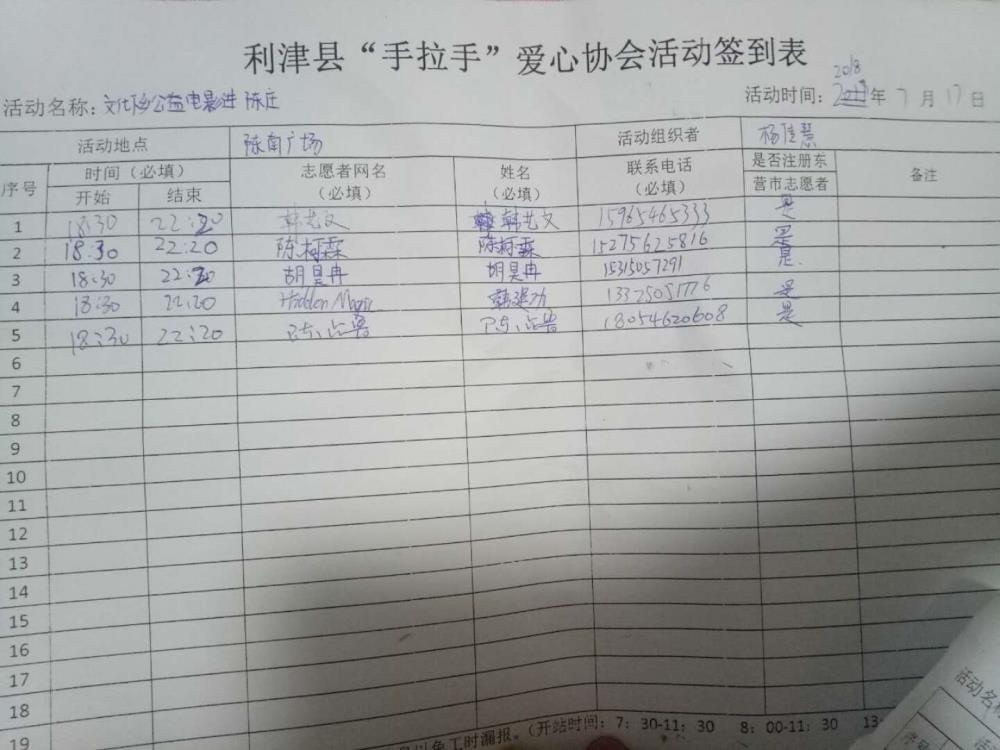 利津县“手拉手”爱心协会活动签到表
活动名称：文化下乡公益电影进陈庄 活动时间：2018年7月17日
活动地点 陈南广场 活动组织者 杨佳慧
序号 时间（必填） 志愿者网名（必填） 姓名（必填） 联系电话（必填） 是否注册东营市志愿者 备注
开始 结束
1 18:30 22:20 韩艺文 韩艺文 15965465333 是
2 18:30 22:20 陈柯霖 陈柯霖 15275625816 是
3 18:30 22:20 胡昊冉 胡昊冉 15315057291 是
4 18:30 22:20 Hidden 韩建功 13325051776 是
5 18:30 22:20 18054620608 是
6
7
8
9
10
11
12
13
14
15
16
17
18
19
以免工时漏报。（开站时间：7：30-11：30 8：00-11：30 13
活动名称
活